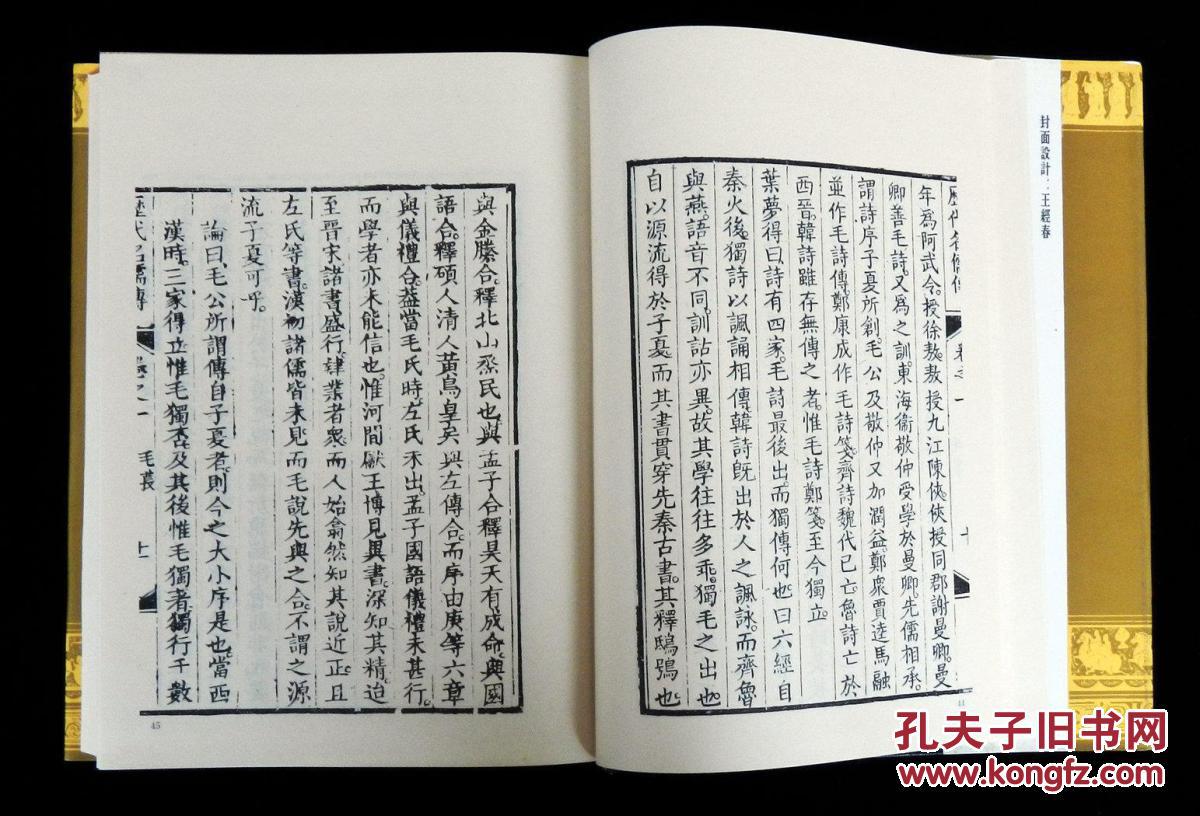 封面設計：王經春
歷代名儒傳 卷之一 十
年爲阿武令。授徐敖。敖授九江陳俠。俠授同郡謝曼卿。曼
卿善毛詩。又爲之訓。東海衞敬仲受學於曼卿。先儒相承。
謂詩序子夏所創。毛公及敬仲又加潤益。鄭衆賈逵馬融
並作毛詩傳。鄭康成作毛詩箋。齊詩魏代已亡。魯詩亡於
西晉。韓詩雖存。無傳之者。惟毛詩鄭箋至今獨立。
葉夢得曰。詩有四家。毛詩最後出。而獨傳何也。曰六經自
秦火後。獨詩以諷誦相傳。韓詩旣出於人之諷詠。而齊魯
與燕。語音不同。訓詁亦異。故其學往往多乖。獨毛之出也
自以源流得於子夏。而其書貫穿先秦古書。其釋鴟鴞也
與金縢合。釋北山烝民也。與孟子合。釋昊天有成命。與國
語合。釋碩人清人黃鳥皇矣。與左傳合。而序由庚等六章
與儀禮合。葢當毛氏時。左氏未出。孟子國語儀禮未甚行。
而學者亦未能信也。惟河間獻王博見異書。深知其精。迨
至晉宋諸書盛行。肄業者衆。而人始翕然知其說近正。且
左氏等書。漢初諸儒皆未見。而毛說先與之合。不謂之源
流子夏可乎。
論曰。毛公所謂傳自子夏者。則今之大小序是也。當西
漢時。三家得立。惟毛獨否。及其後惟毛獨著。獨行千數
歷代名儒傳 卷之一 毛萇 十一
45
孔夫子旧书网
www.kongfz.com